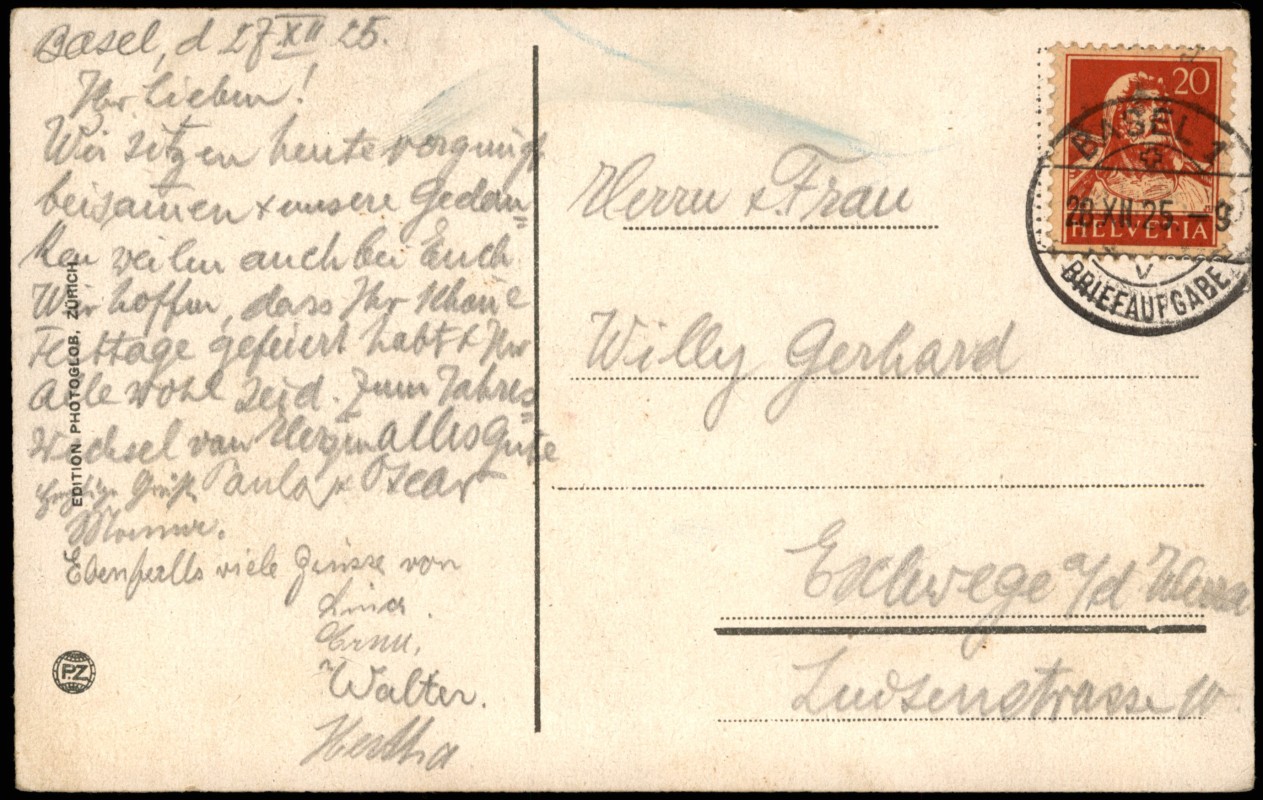 Basel, d 27 XII 25.
Ihr Lieben!
Wir sitzen heute vergnügt
beisamen + unsere Gedan=
ken weilen auch bei Euch
Wir hoffen, dass Ihr schöne
Festtage gefeiert habt + Ihr
Alle wohl seid. Zum Jahres=
Wechsel von Herzen alles Gute
Grüße Paula + Oscar
Ebenfalls viele Grüsse von
Lina.
Erna.
Walter.
Hertha
EDITION PHOTOGLOB, ZÜRICH.
P.Z
20
HELVETIA
BASEL 1
28.XII.25.-9
V
BRIEFAUFGABE
Herrn & Frau
Willy Gerhard
Eschwege a/d Werra
10